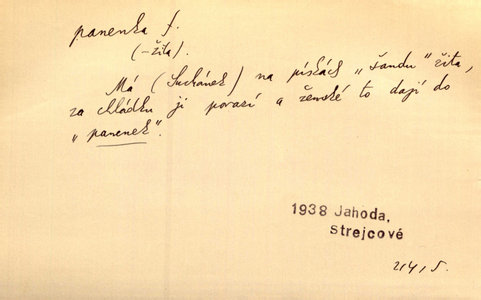 panenka f.
(-žita).
Má (Suchánek) na pískách „šandu" žita,
za chládku ji porazí a ženské to dají do
„panenek".
1938 Jahoda,
Strejcové